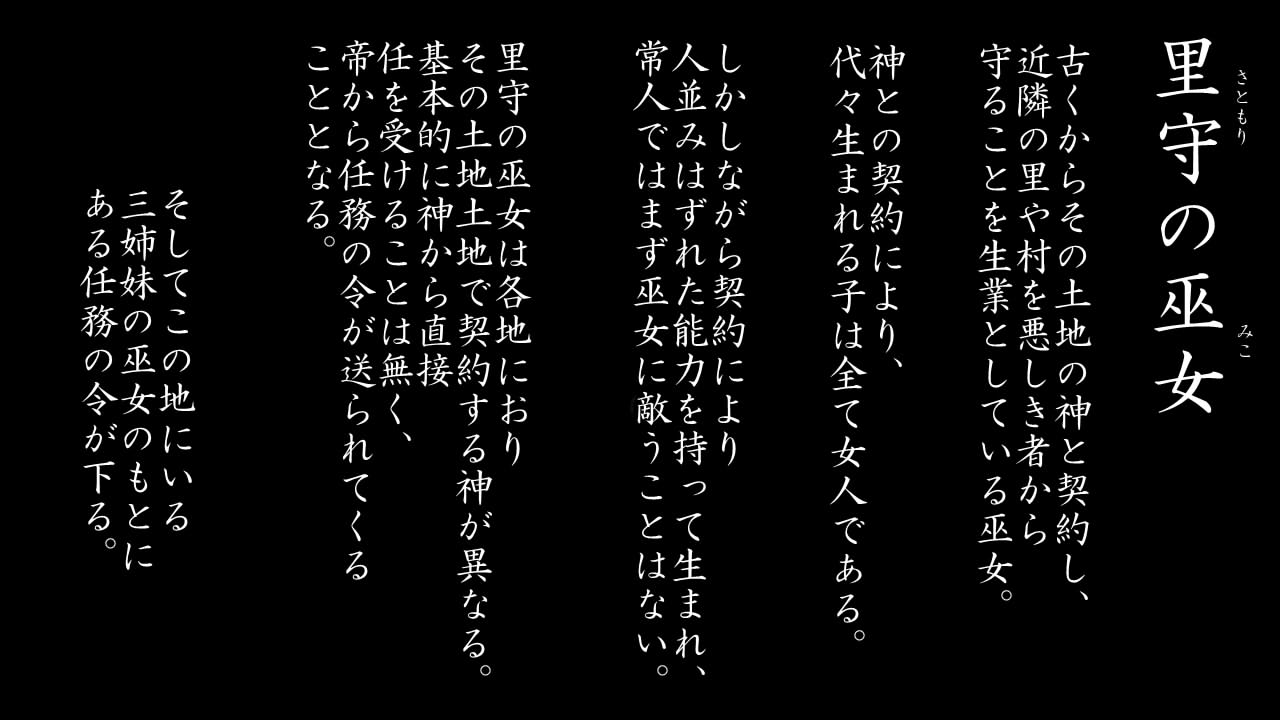 里守の巫女
さともり
みこ
古くからその土地の神と契約し、
近隣の里や村を悪しき者から
守ることを生業としている巫女。
神との契約により、
代々生まれる子は全て女人である。
しかしながら契約により
人並みはずれた能力を持って生まれ、
常人ではまず巫女に敵うことはない。
里守の巫女は各地におり
その土地土地で契約する神が異なる。
基本的に神から直接
任を受けることは無く、
帝から任務の令が送られてくる
こととなる。
そしてこの地にいる
三姉妹の巫女のもとに
ある任務の令が下る。